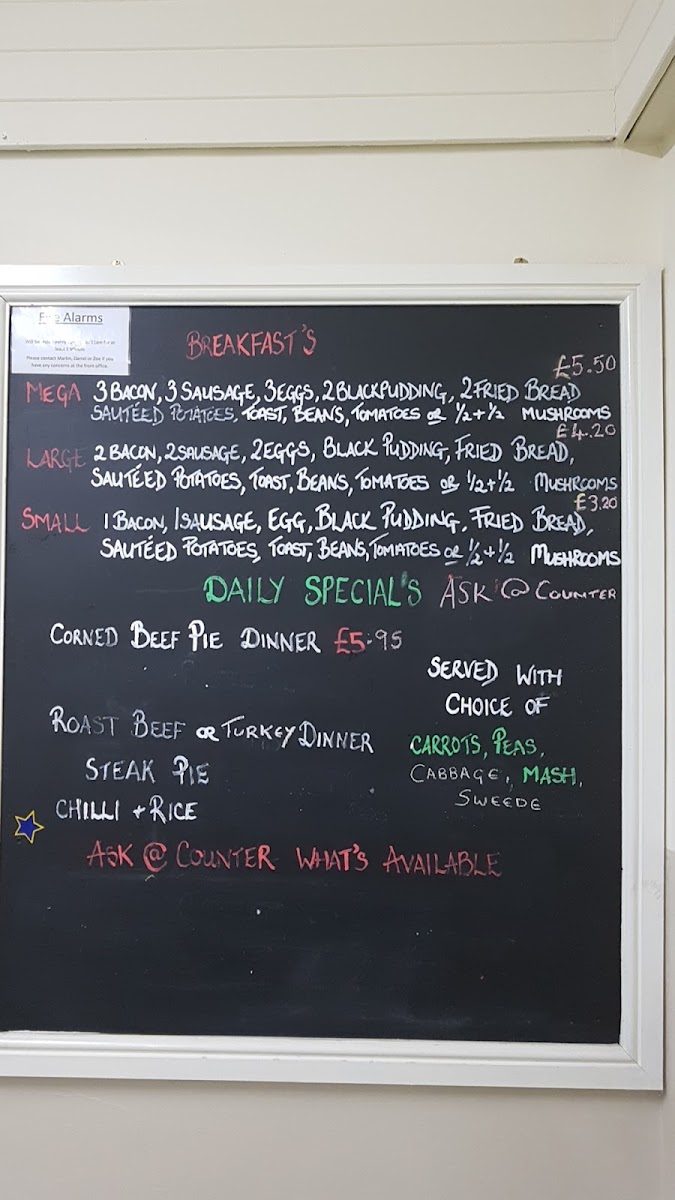 Fire Alarms
Please contact Martin, Daniel or Zoe if you
have any concerns at the front office.
BREAKFAST'S
£5.50
MEGA 3 BACON, 3 SAUSAGE, 3 EGGS, 2 BLACKPUDDING, 2 FRIED BREAD
SAUTÉED POTATOES, TOAST, BEANS, TOMATOES OR ½+½ MUSHROOMS
£4.20
LARGE 2 BACON, 2 SAUSAGE, 2 EGGS, BLACK PUDDING, FRIED BREAD,
SAUTÉED POTATOES, TOAST, BEANS, TOMATOES OR ½+½ MUSHROOMS
£3.20
SMALL 1 BACON, 1 SAUSAGE, EGG, BLACK PUDDING, FRIED BREAD,
SAUTÉED POTATOES, TOAST, BEANS, TOMATOES OR ½+½ MUSHROOMS
DAILY SPECIAL'S ASK @ COUNTER
CORNED BEEF PIE DINNER £5.95
SERVED WITH
CHOICE OF
ROAST BEEF OR TURKEY DINNER
CARROTS, PEAS,
STEAK PIE
CABBAGE, MASH,
SWEEDE
CHILLI + RICE
ASK @ COUNTER WHAT'S AVAILABLE